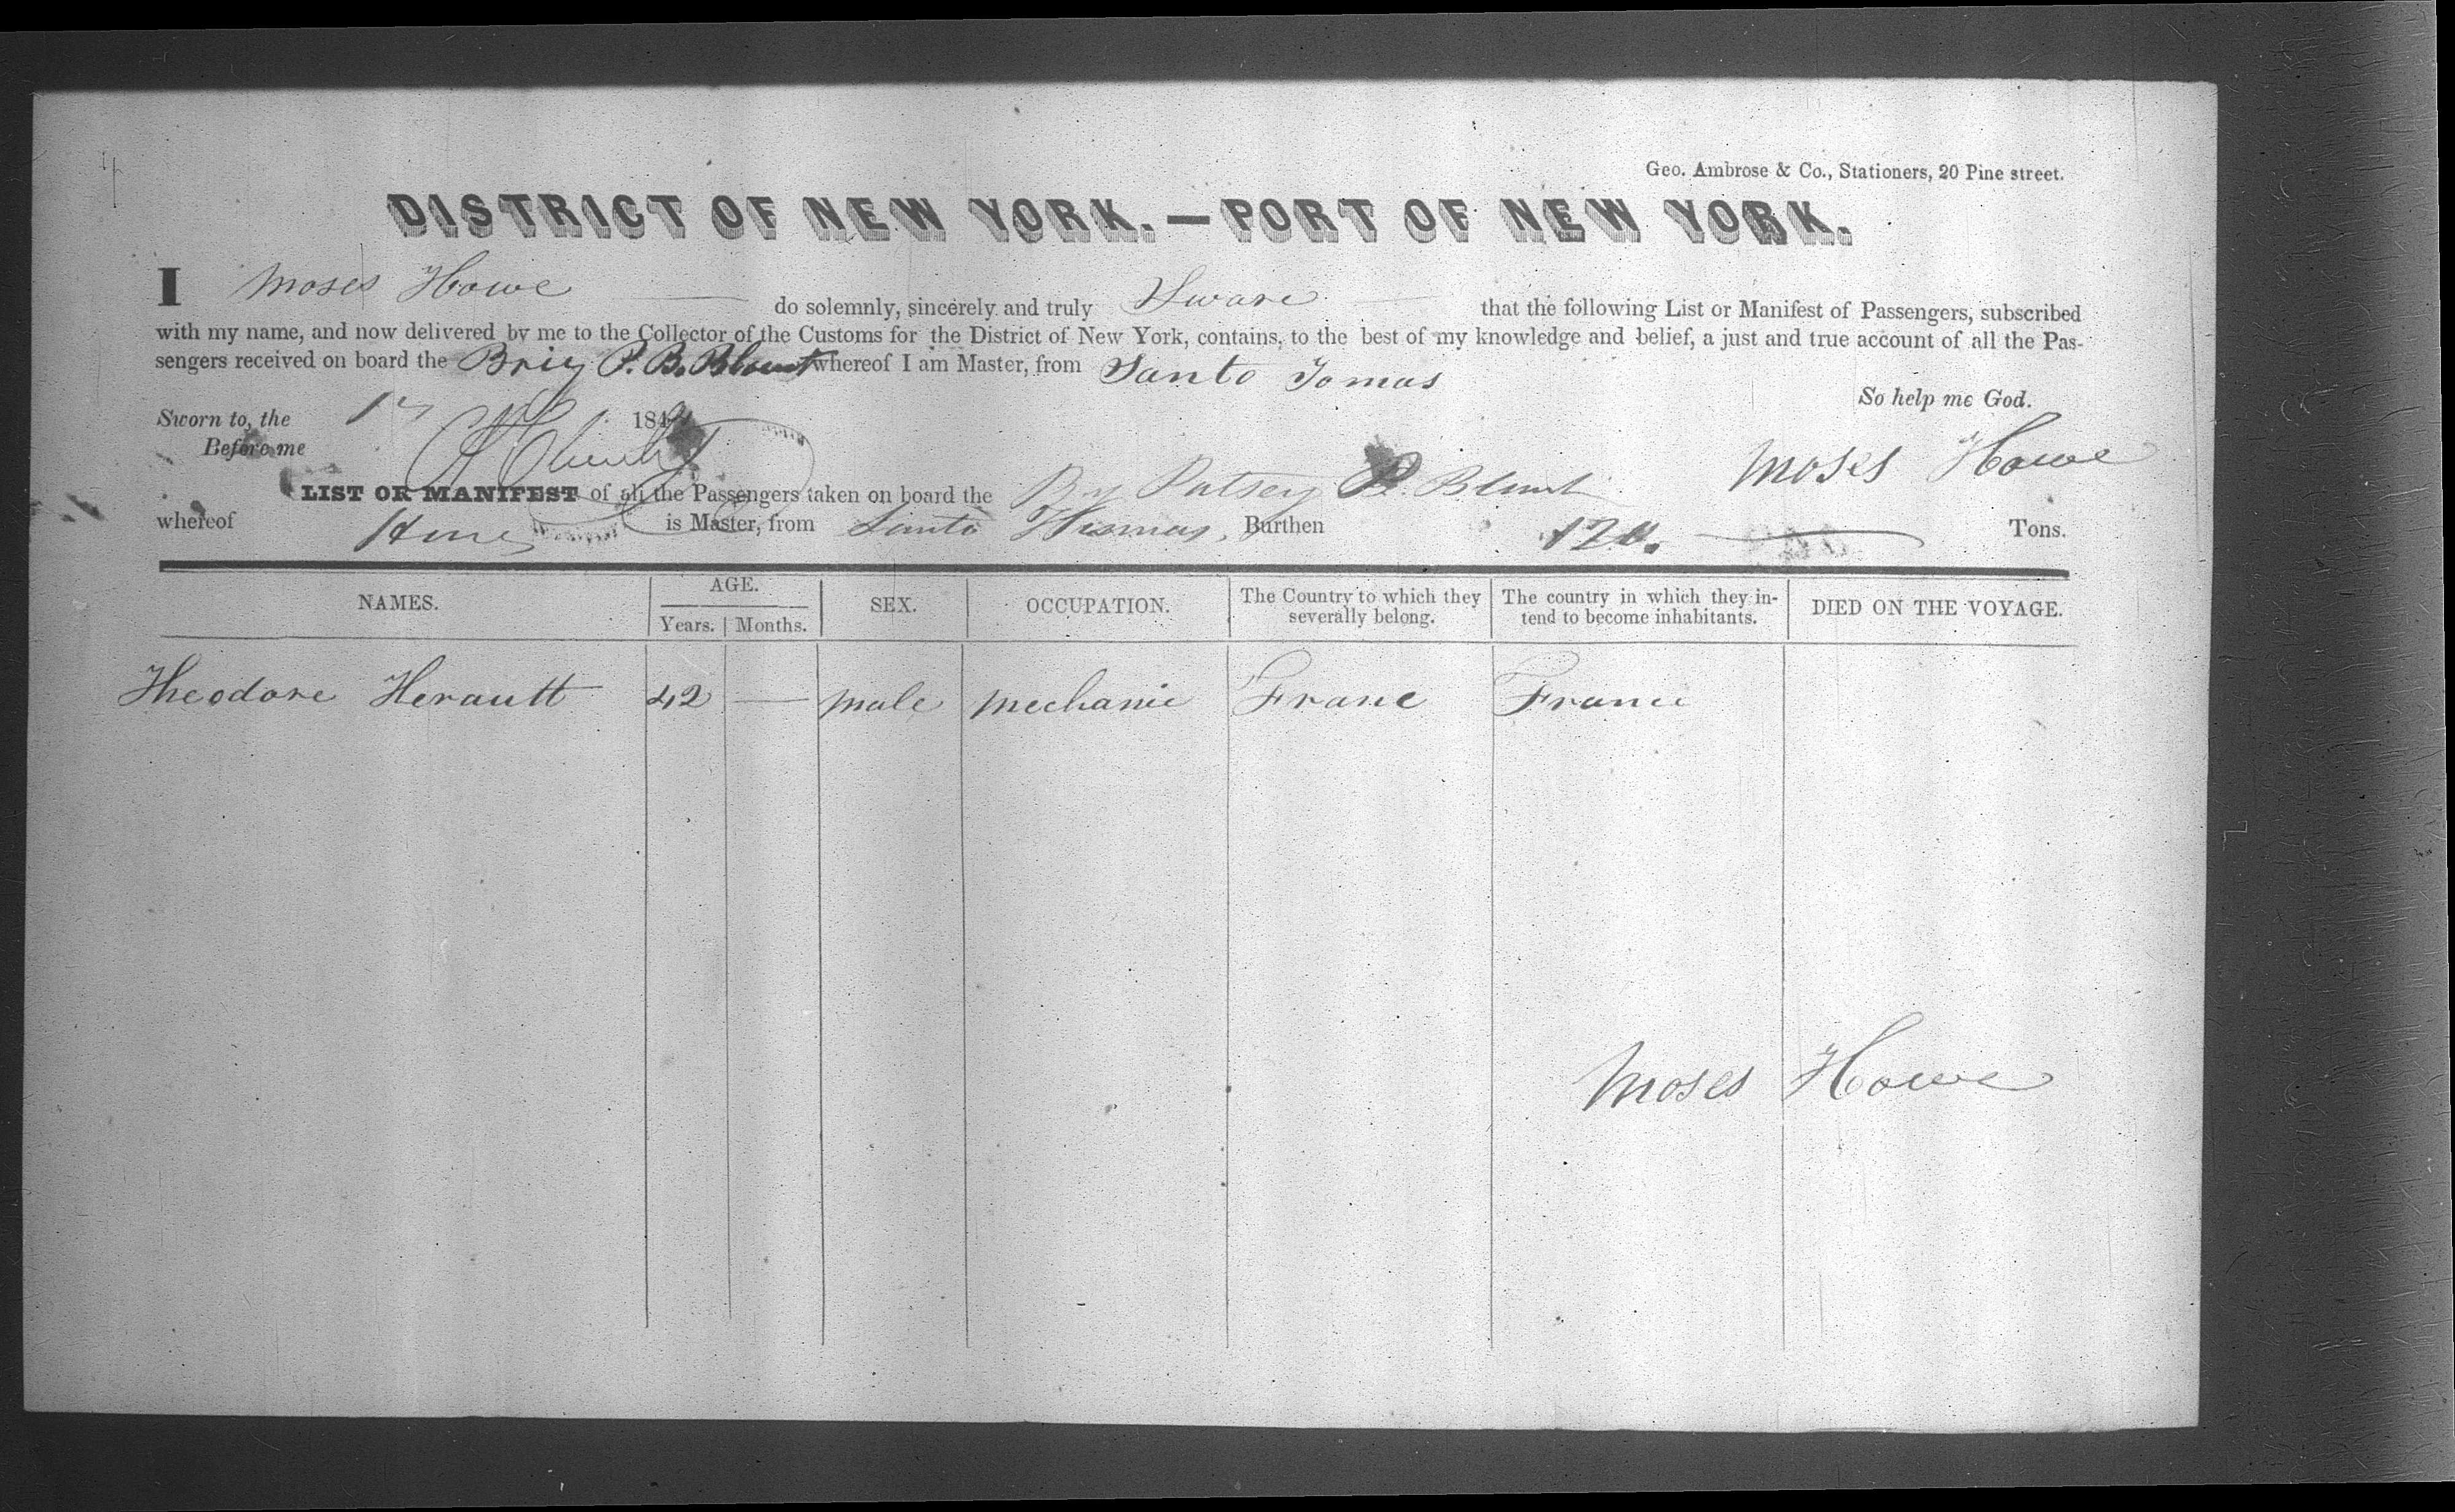 Geo. Ambrose & Co., Stationers, 20 Pine street.
DISTRICT OF NEW YORK.—PORT OF NEW YORK.
I Moses Howe do solemnly, sincerely and truly Sware that the following List or Manifest of Passengers, subscribed
with my name, and now delivered by me to the Collector of the Customs for the District of New York, contains, to the best of my knowledge and belief, a just and true account of all the Pas-
sengers received on board the Brig P. B. Blount whereof I am Master, from Santo Tomas
So help me God.
Sworn to, the 184
Before me
Moses Howe
LIST OR MANIFEST of all the Passengers taken on board the Brig Patsey B. Blount
whereof Howe is Master, from Santo Thomas, Burthen 120. Tons.
NAMES. AGE. SEX. OCCUPATION. The Country to which they severally belong. The country in which they in-tend to become inhabitants. DIED ON THE VOYAGE.
Years. Months.
Theodore Herault 42 — male mechanic Franc France
Moses Howe